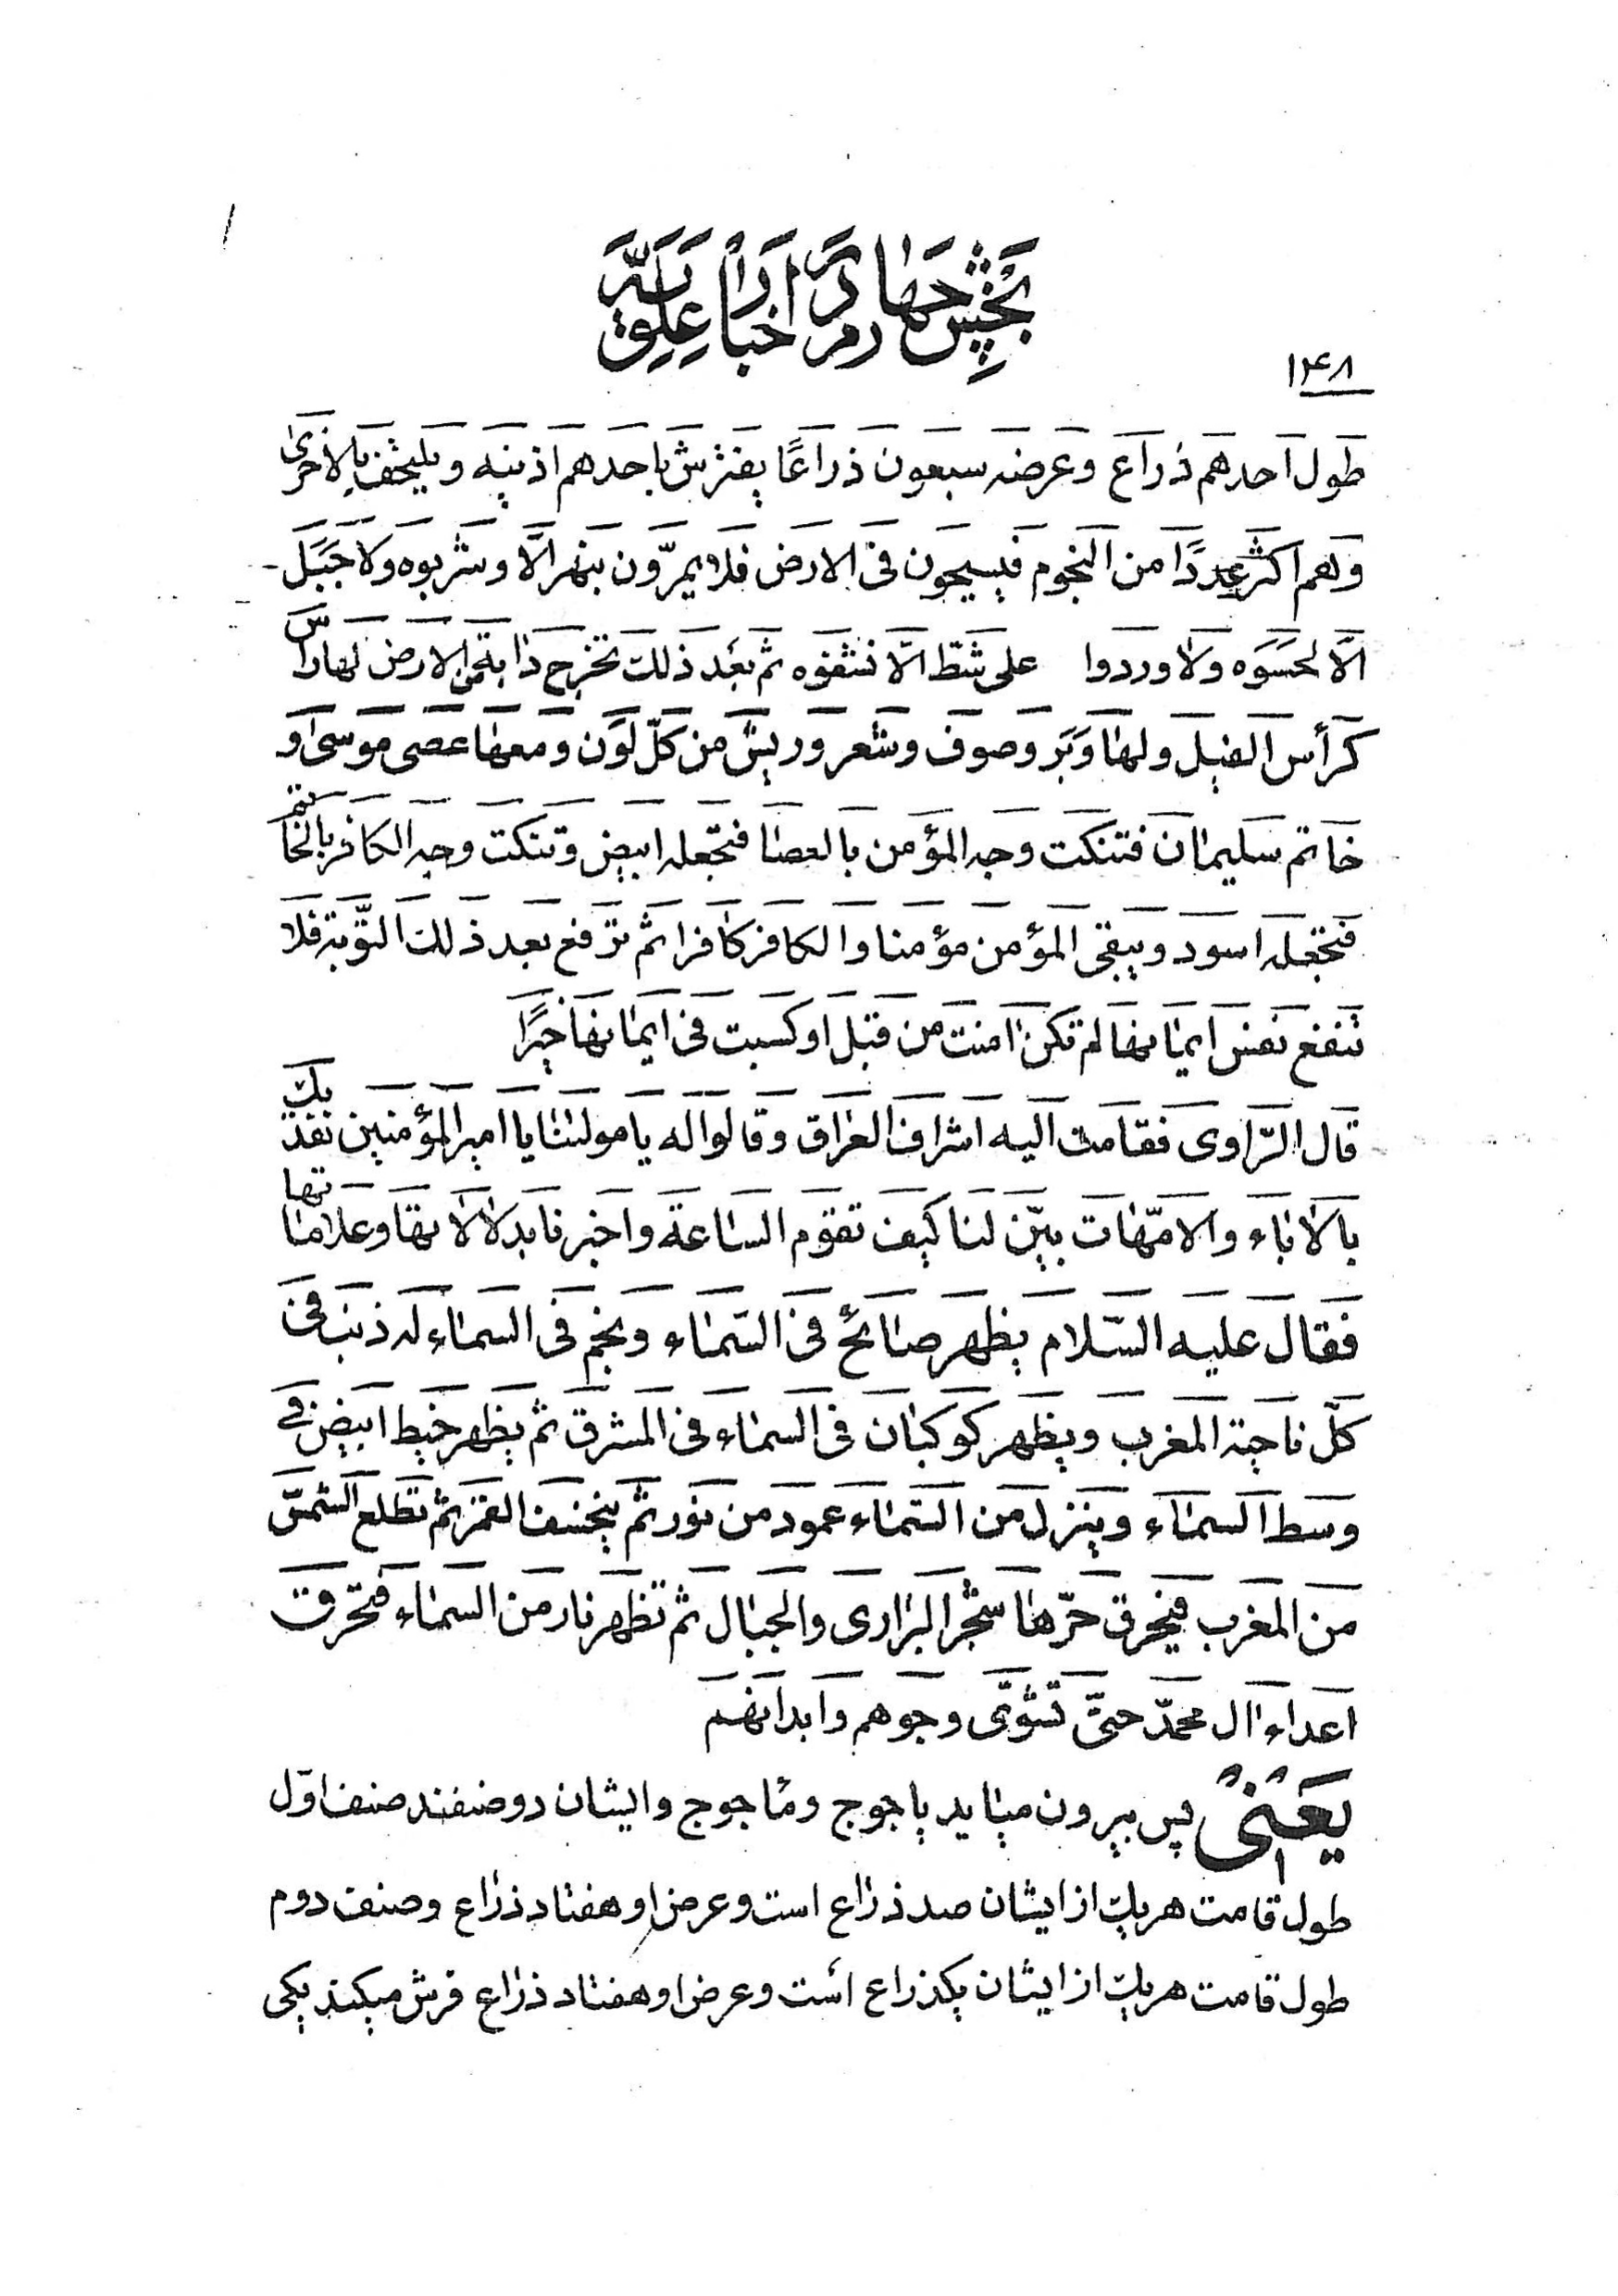 بخش چهارم در اخبار علویه
۱۴۸
طول احدهم ذراع وعرضه سبعون ذراعًا یفترش باحدهم اذنیه ویلتحف بالاخری
وهم اکثر عددًا من النجوم فیسیحون فی الارض فلا یمرّون بنهر الّا وشربوه ولا جبل
الّا لحسوه ولا وردوا علی شطّ الّا نشفوه ثمّ بعد ذلک تخرج دابّة من الارض لها راس
کرأس الفیل ولها وبر وصوف وشعر وریش من کلّ لون ومعها عصی موسی و
خاتم سلیمان فتنکت وجه المؤمن بالعصا فتجعله ابیض وتنکت وجه الکافر بالخاتم
فتجعله اسود ویبقی المؤمن مؤمنا والکافر کافرا ثمّ ترفع بعد ذلک التّوبة فلا
تنفع نفس ایمانها لم تکن امنت من قبل او کسبت فی ایمانها خیرًا
قال الرّاوی فقامت الیه اشراف العراق وقالوا له یا مولینا یا امیر المؤمنین نفدیک
بالاباء والامّهات بیّن لنا کیف تقوم الساعة واخبرنا بدلالاتها وعلاماتها
فقال علیه السّلام یظهر صائح فی السّماء ونجم فی السماء له ذنب فی
کلّ ناحیة المغرب ویظهر کوکبان فی السماء فی المشرق ثم یظهر خیط ابیض فی
وسط السماء وینزل من السّماء عمود من نور ثم ینخسف القمر ثم تطلع الشمس
من المغرب فیحرق حرّها شجر البراری والجبال ثم تظهر نار من السماء فتحرق
اعداء ال محمّد حتّی تشوی وجوههم وابدانهم
یعنی پس بیرون میاید یاجوج وماجوج وایشان دو صنفند صنف اوّل
طول قامت هریک از ایشان صد ذراع است وعرض او هفتاد ذراع وصنف دوم
طول قامت هریک از ایشان یکذراع است وعرض او هفتاد ذراع فرش میکند یکی